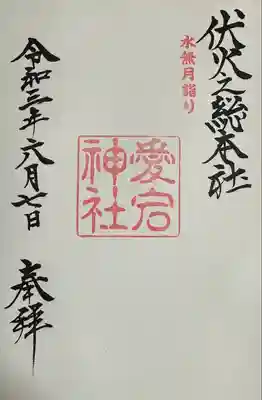 伏火之総本社
水無月詣り
愛宕
神社
令和三年六月七日
奉拝